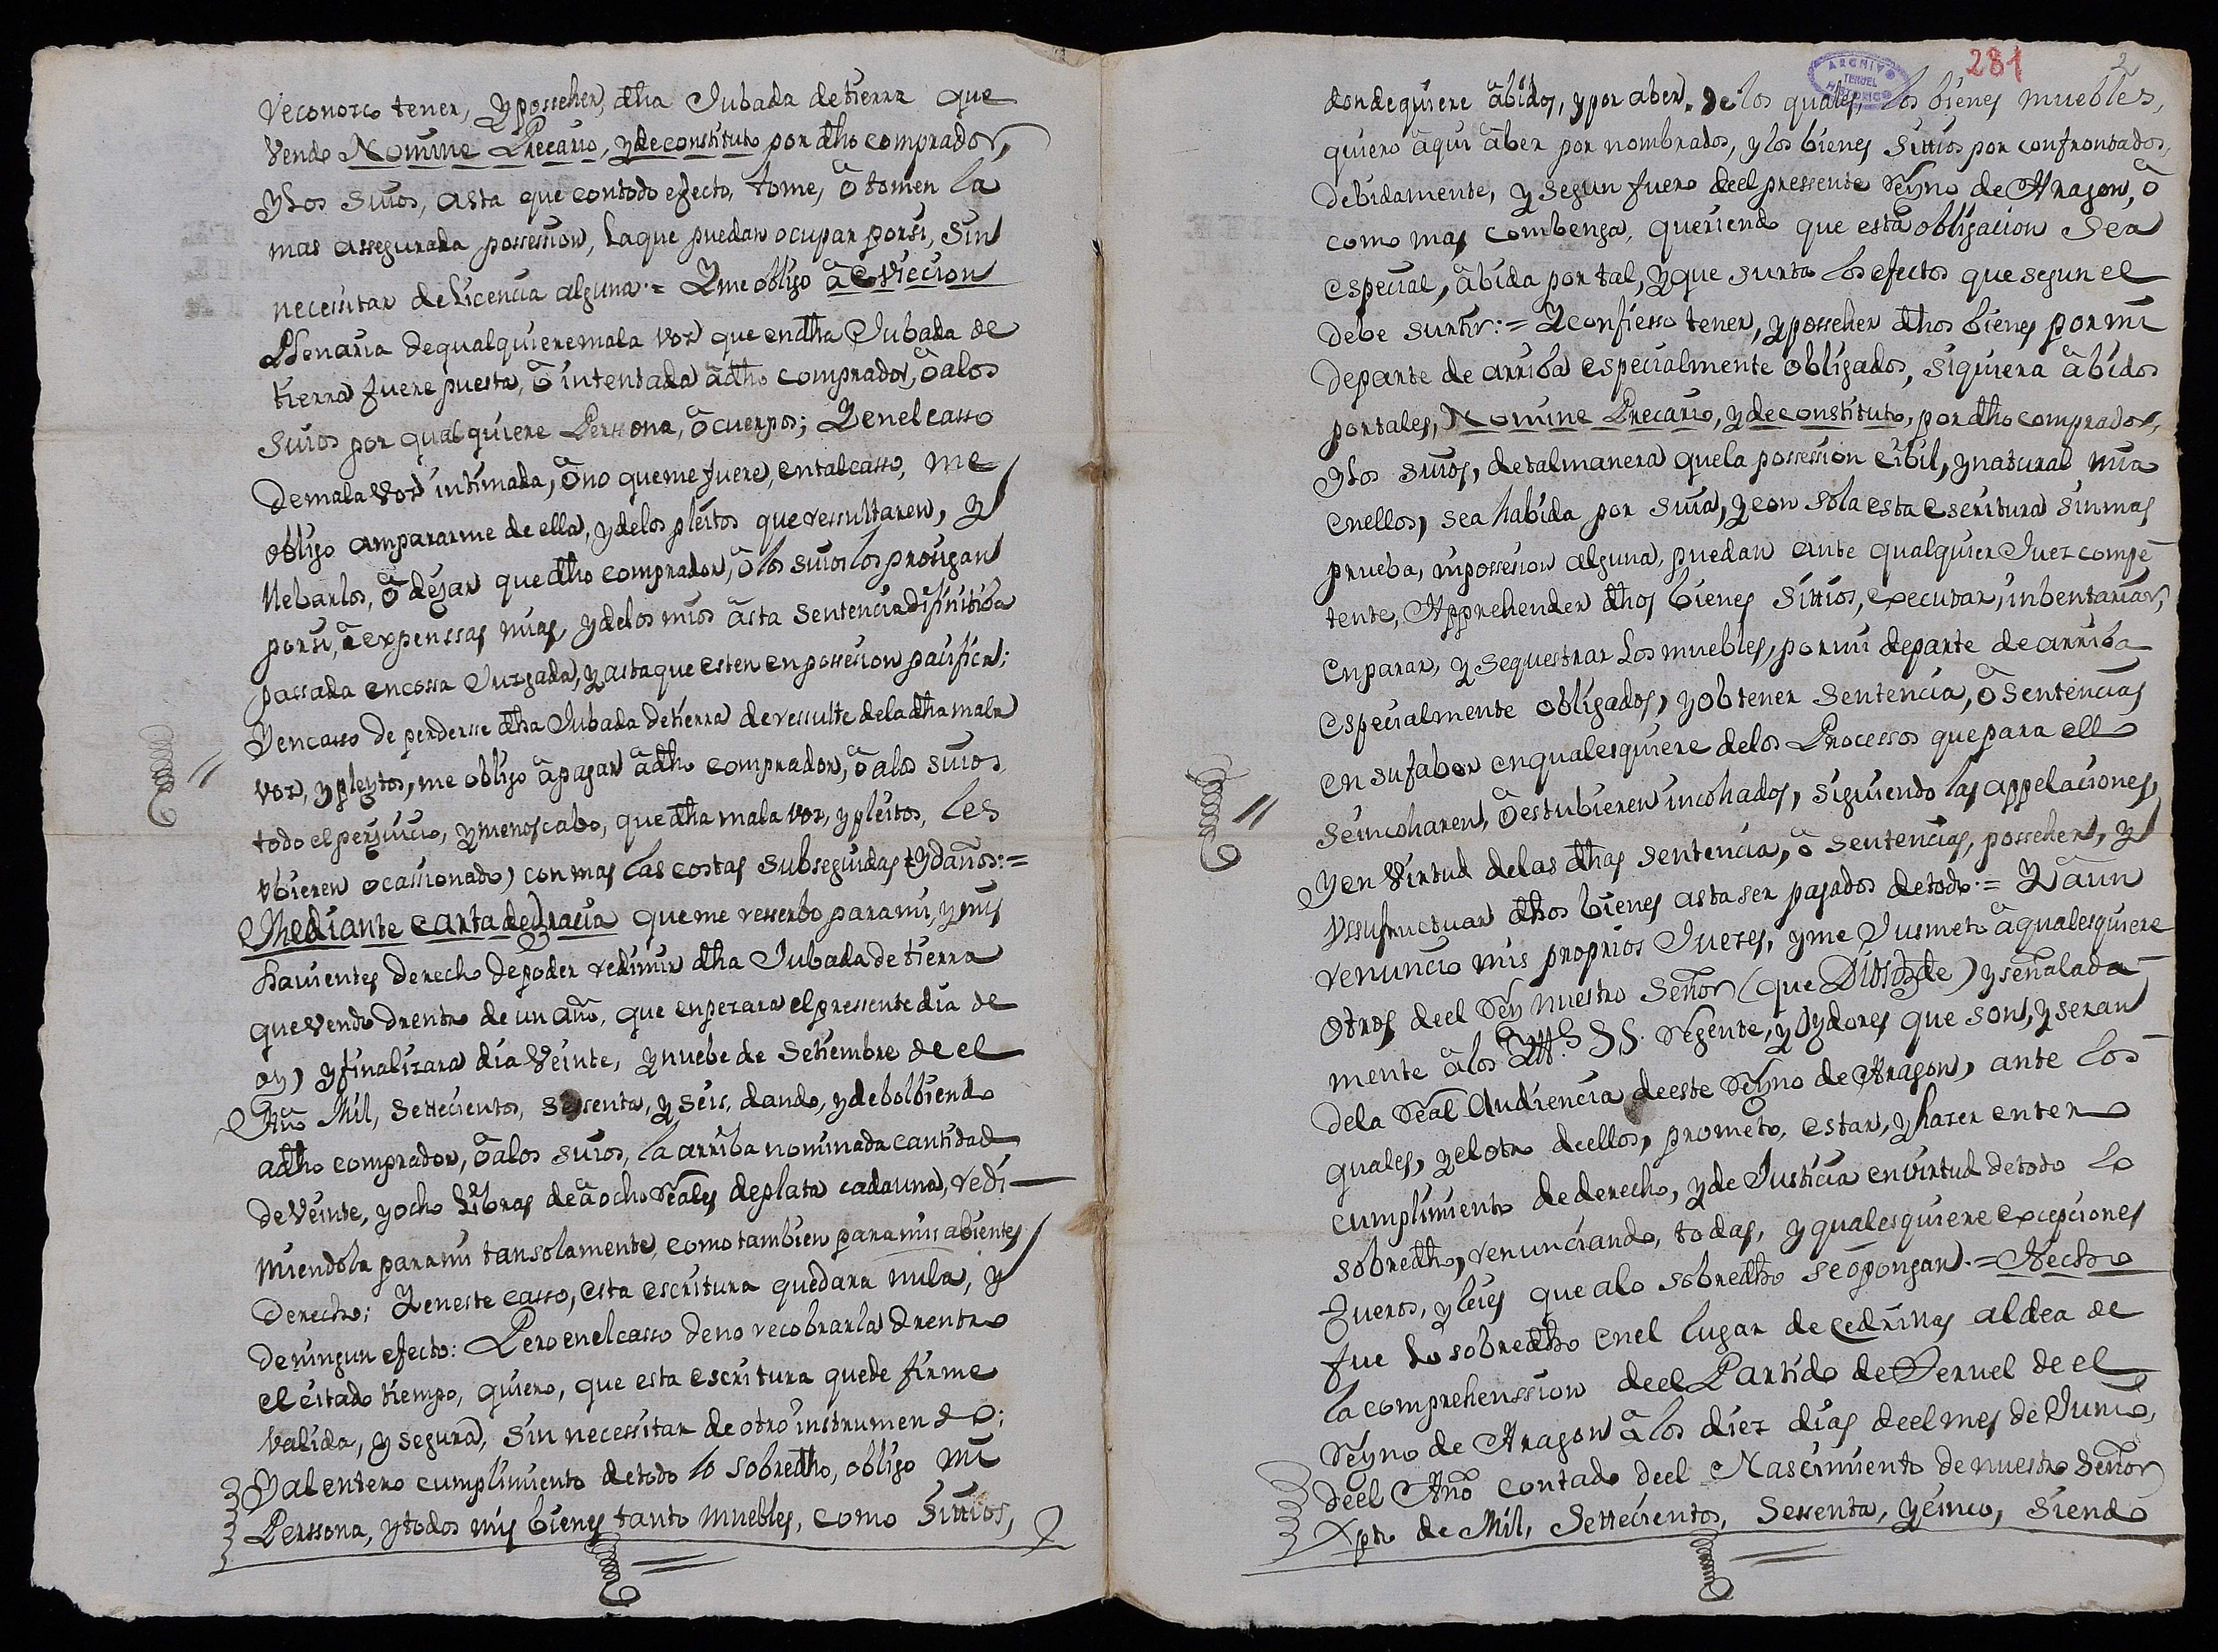 reconozco tener, y posseher, dha Jubada de tierra que
Vendo Nomine Precario, y de constituto por dho comprador,
y los suios, asta que con todo efecto, tome, ô tomen la
mas assegurada possession, la que puedan ocupar por si, sin
necessitar de licencia alguna:= Y me obligo â eviccion
Plenaria de qualquiere mala voz que en dha Jubada de
tierra fuere puesta, ô intentada â dho comprador, ô a los
suios por qualquiere Perssona, ô cuerpos; Y en el casso
de mala voz intimada, ô no que me fuere, en tal casso, me
obligo ampararme de ella, y de los pleitos que ressultaren, y
llebarlos, ô dejar que dho comprador, ô los suios los prosigan
por si, â expenssas mias, y de los mios âsta sentencia difinitiba
passada en cossa Juzgada, y asta que esten en possesion pacifica:
Y en casso de perdersse dha Jubada de tierra de ressulte de la dha mala
voz, y pleytos, me obligo â pagar â dho comprador, ô a los suios
todo el perjuicio, y menoscabo, que dha mala voz, y pleitos, les
vbieren ocassionado, con mas las costas subseguidas y daños:=
Mediante carta de gracia que me resserbo para mi, y mis
havientes derecho de poder redimir dha Jubada de tierra
que vendo drentro de un año, que enpezara el pressente dia de
oy, y finalizara dia Veinte, y nuebe de Setiembre de el
Año Mil, settecientos, sessenta, y seis, dando, y debolbiendo
a dho comprador, ô a los suios, la arriba nominada cantidad
de Veinte, y ocho Libras de â ocho Reales de plata cada una, redi-
miendola para mi tan solamente, como tambien para mis abientes
derecho; Y en este casso, esta escritura quedara nula, y
de ningun efecto: Pero en el casso de no recobrarla drentro
el citado tiempo, quiero, que esta escritura quede firme
valida, y segura, sin necessitar de otro instrumento;
Y al entero cumplimiento de todo lo sobredho, obligo mi
Perssona, y todos mis bienes tanto muebles, como sittios,
281 2
ARCHIVO HISTORICO TERUEL
donde quiere âbidos, y por aber. De los quales, los bienes muebles,
quiero âqui âber por nombrados, y los bienes sittios por confrontados,
debidamente, y segun fuero de el pressente Reyno de Aragon, ô
como mas combenga, queriendo que esta obligacion sea
especial, âbida por tal, y que surta los efectos que segun el
debe surtir:= Y confiesso tener, y posseher dhos bienes por mi
de parte de arriba especialmente obligados, siquiera âbidos
por tales, Nomine Precario, y de constituto, por dho comprador,
y los suios, de tal manera que la possession cibil, y natural mia
en ellos, sea habida por suia, y con sola esta escritura sin mas
prueba, ni possesion alguna, puedan ante qualquier Juez compe-
tente, Apprehender dhos bienes sittios, executar, inbentariar,
enparar, y sequestrar los muebles, por mi de parte de arriba
especialmente obligados, y obtener sentencia, ô sentencias
en su fabor en qualesquiere de los Processos que para ello
se incoharen, ô estubieren incohados, siguiendo las appelaciones,
y en Virtud de las dhas sentencia, ô sentencias, posseher, y
vssufructuar dhos bienes asta ser pagados de todo:= Y âun
renuncio mis proprios Juezes, y me Jusmeto â qualesquiere
otros de el Rey nuestro Señor (que Dios gde) y señalada-
mente â los SS. Regente, y Oydores que son, y seran
de la Real Audiencia de este Reyno de Aragon, ante los
quales, y el otro de ellos, prometo, estar, y hazer entero
cumplimiento de derecho, y de Justicia en virtud de todo lo
sobredho, renunciando, todas, y qualesquiere excepciones
fueros, y leies que a lo sobredho se opongan:= Hecho
fue lo sobredho en el lugar de cedrillas aldea de
la comprehenssion de el Partido de Teruel de el
Reyno de Aragon â los diez dias de el mes de Junio,
de el Año contado de el Nascimiento de nuestro Señor
Xpto de Mil, Settecientos, Sessenta, y cinco, siendo